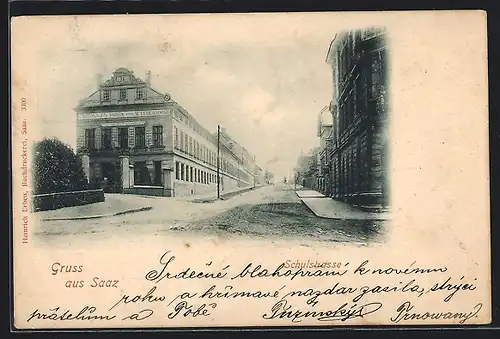 Heinrich Erben, Buchdruckerei, Saaz. 3300
Gruss
aus Saaz
Schulstrasse
Srdečné blahopřání k novému
roku a hřímavé nazdar zasílá, strýci
přátelům a Tobě
Trnowany.